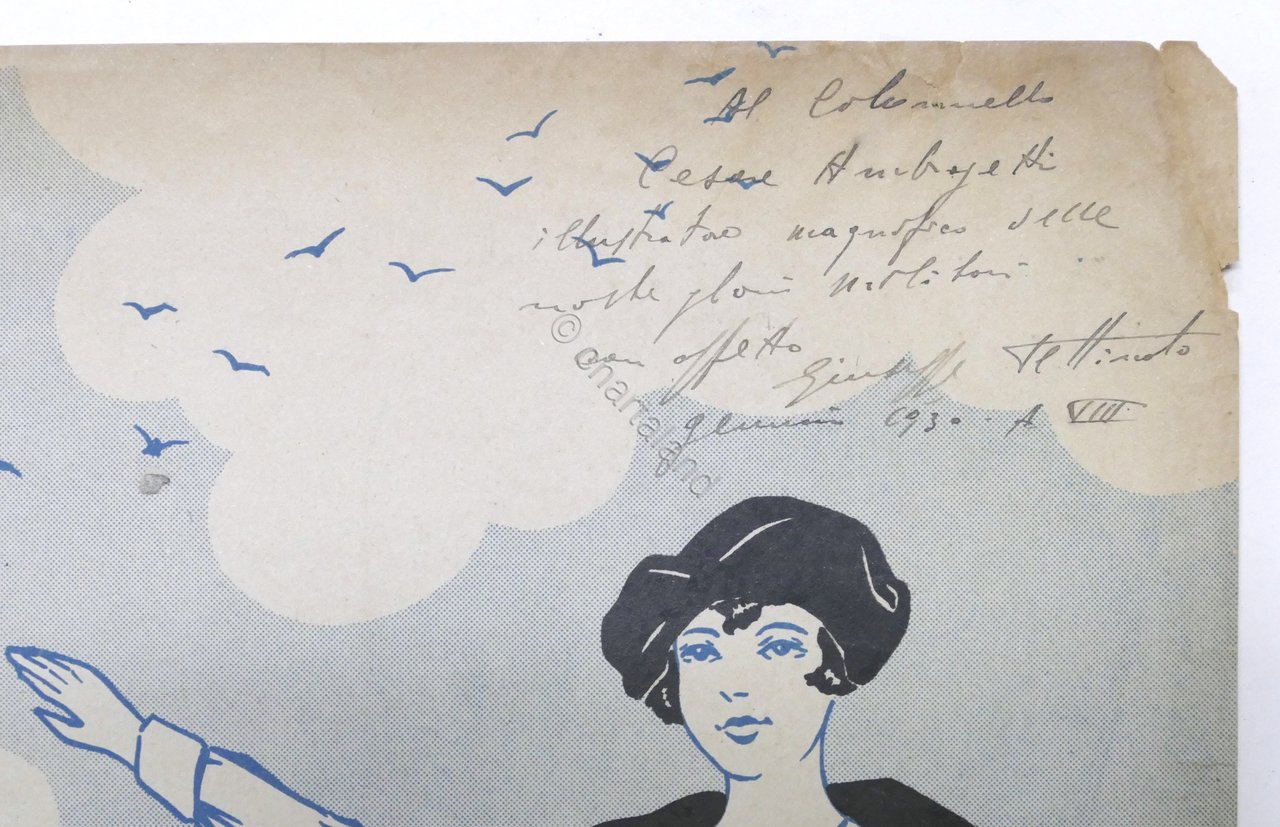 Al Colonnello
Cesare Ambrogetti
illustratore magnifico delle
nostre glorie militari
con affetto
Giuseppe Pettinato
gennaio 1930 - A VIII
© Chartaland